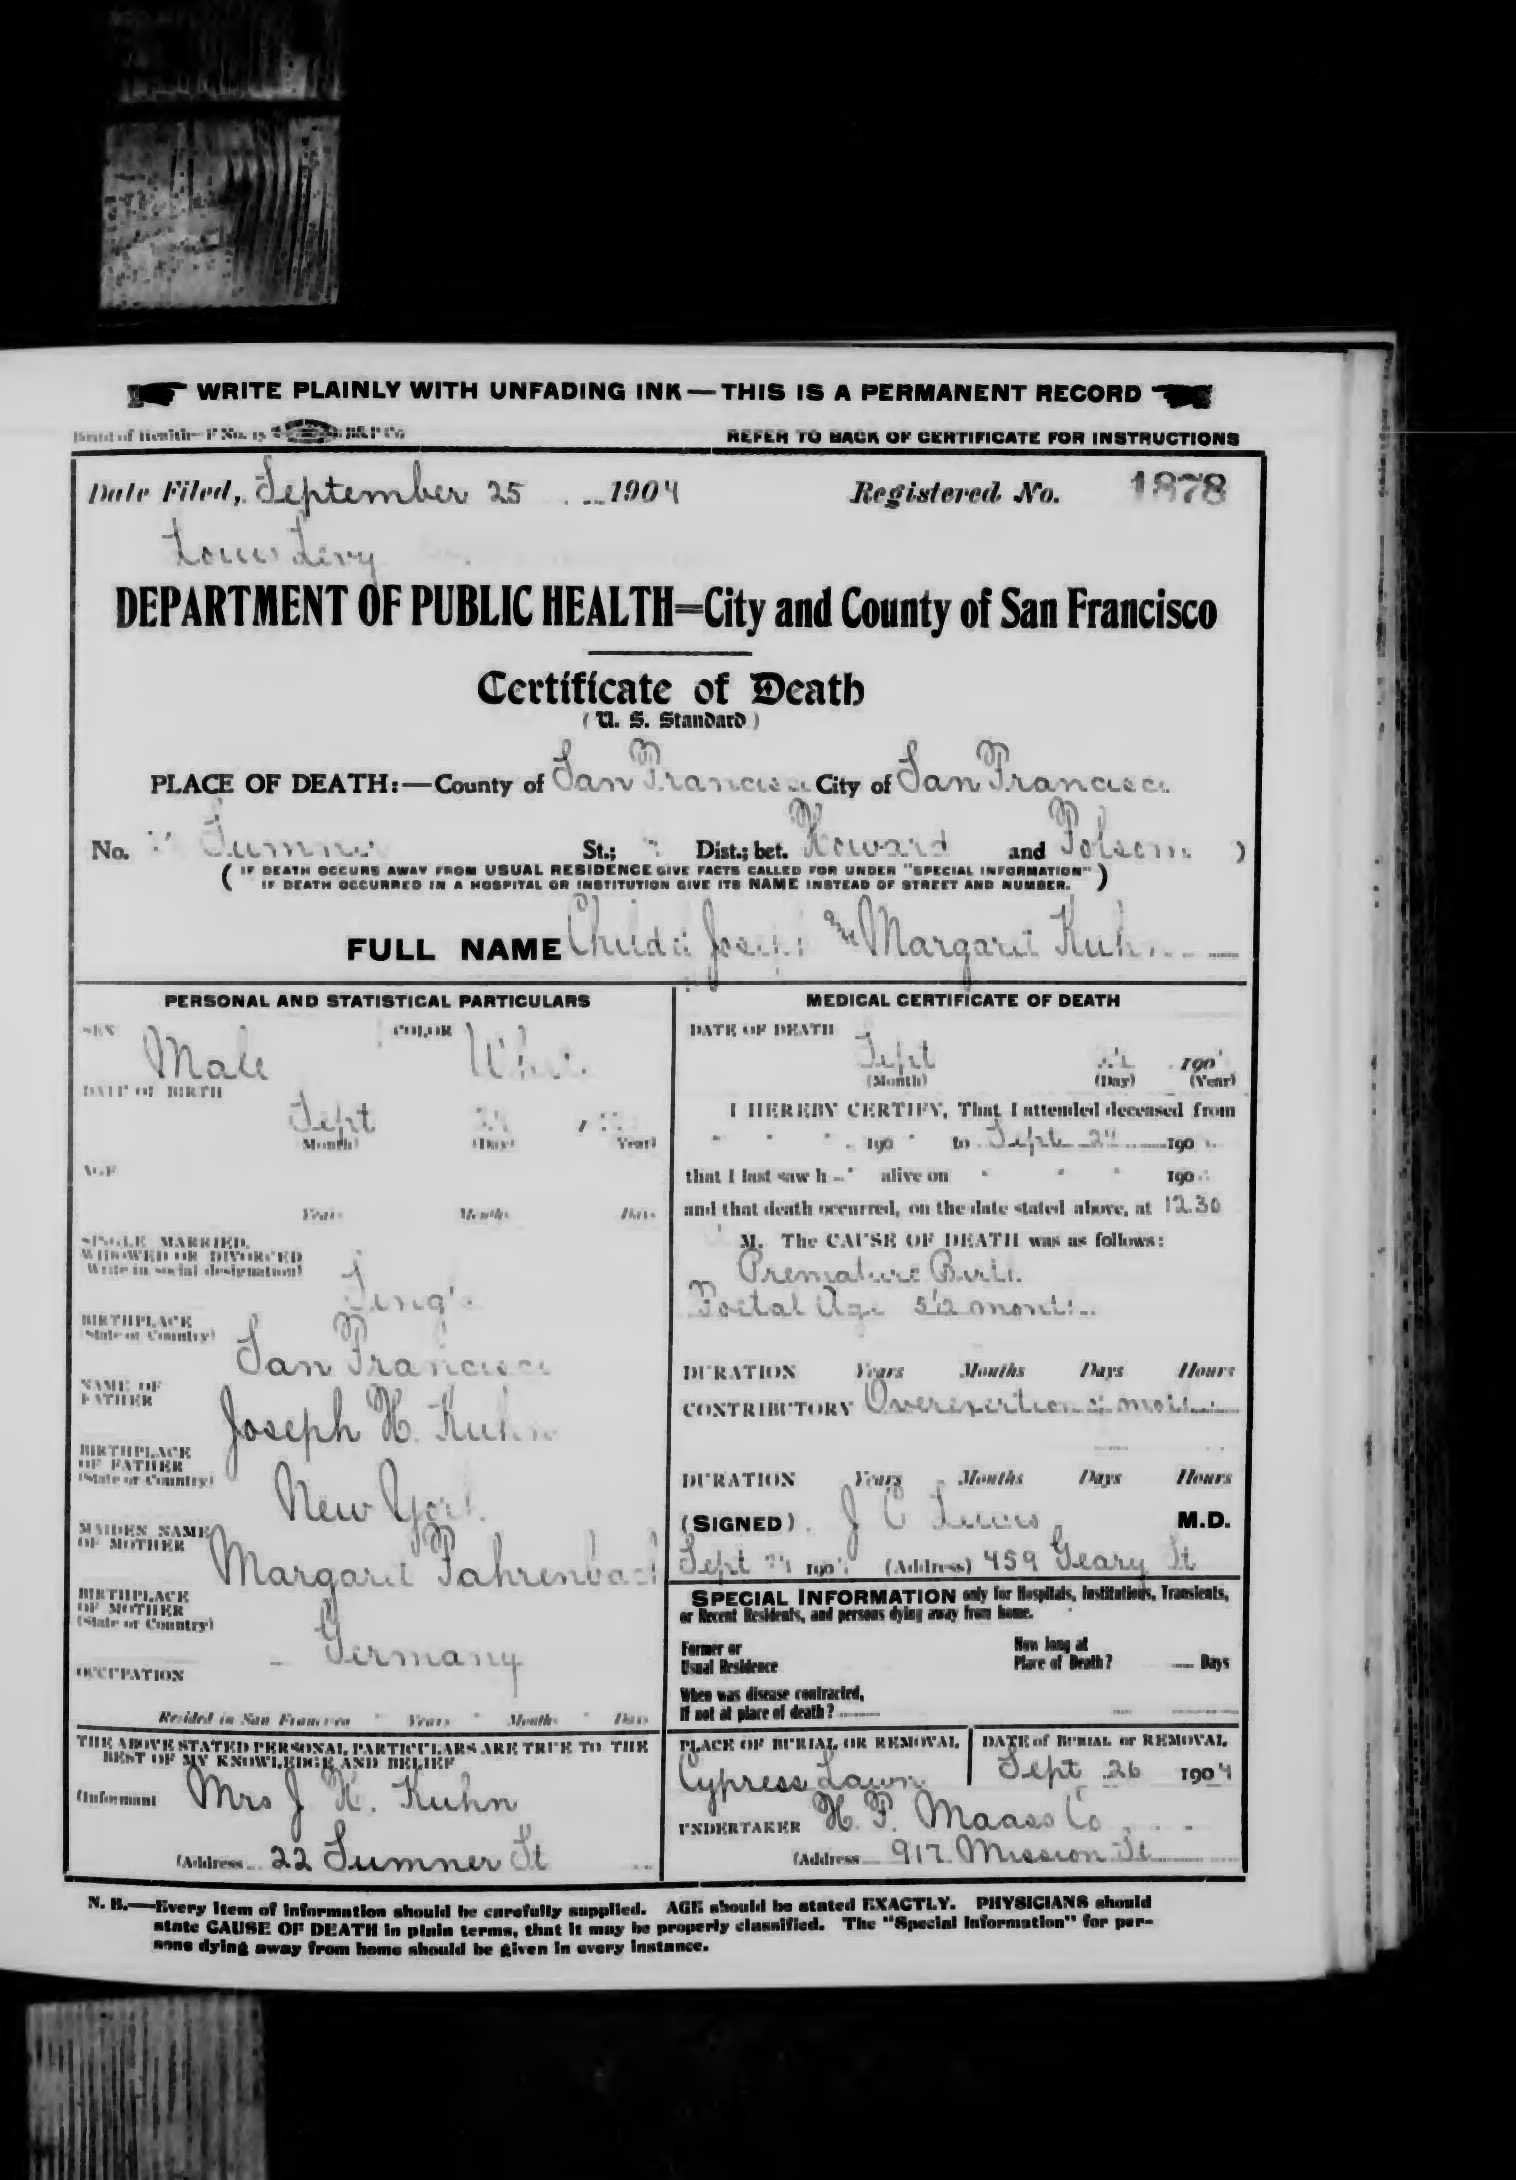 WRITE PLAINLY WITH UNFADING INK—THIS IS A PERMANENT RECORD
Board of Health—F No. 15 B&P Co
REFER TO BACK OF CERTIFICATE FOR INSTRUCTIONS
Date Filed, September 25 1904 Registered No. 1878
Louis Levy
DEPARTMENT OF PUBLIC HEALTH=City and County of San Francisco
Certificate of Death
(U. S. Standard)
PLACE OF DEATH:—County of San Francisco City of San Francisco
No. Sumner St.; Dist.; bet. Howard and Folsom )
( IF DEATH OCCURS AWAY FROM USUAL RESIDENCE GIVE FACTS CALLED FOR UNDER "SPECIAL INFORMATION"
IF DEATH OCCURRED IN A HOSPITAL OR INSTITUTION GIVE ITS NAME INSTEAD OF STREET AND NUMBER. )
FULL NAME Child of Joseph and Margaret Kuhn
PERSONAL AND STATISTICAL PARTICULARS
SEX Male COLOR White
DATE OF BIRTH
Sept
(Month) (Day) (Year)
AGE
Years Months Days
SINGLE MARRIED,
WIDOWED OR DIVORCED
Write in social designation)
Single
BIRTHPLACE
(State or Country)
San Francisco
NAME OF
FATHER
Joseph H. Kuhn
BIRTHPLACE
OF FATHER
(State or Country)
New York
MAIDEN NAME
OF MOTHER
Margaret Fahrenbach
BIRTHPLACE
OF MOTHER
(State or Country)
Germany
OCCUPATION
Resided in San Francisco Years Months Days
THE ABOVE STATED PERSONAL PARTICULARS ARE TRUE TO THE
BEST OF MY KNOWLEDGE AND BELIEF
(Informant Mrs J. H. Kuhn
(Address 22 Sumner St
MEDICAL CERTIFICATE OF DEATH
DATE OF DEATH
Sept 190
(Month) (Day) (Year)
I HEREBY CERTIFY, That I attended deceased from
190 to Sept 24 190
that I last saw h alive on 190
and that death occurred, on the date stated above, at 12.30
M. The CAUSE OF DEATH was as follows:
Premature Birth
Foetal Age 5 1/2 months
DURATION Years Months Days Hours
CONTRIBUTORY Overexertion of mother
DURATION Years Months Days Hours
(SIGNED) J C Lewis M.D.
Sept 190 (Address) 459 Geary St
SPECIAL INFORMATION only for Hospitals, Institutions, Transients,
or Recent Residents, and persons dying away from home.
Former or
Usual Residence
How long at
Place of Death? Days
When was disease contracted,
If not at place of death?
PLACE OF BURIAL OR REMOVAL
Cypress Lawn
DATE of BURIAL or REMOVAL
Sept 26 1904
UNDERTAKER H. F. Maass Co
(Address 917 Mission St
N. B.—Every item of information should be carefully supplied. AGE should be stated EXACTLY. PHYSICIANS should
state CAUSE OF DEATH in plain terms, that it may be properly classified. The "Special Information" for per-
sons dying away from home should be given in every instance.